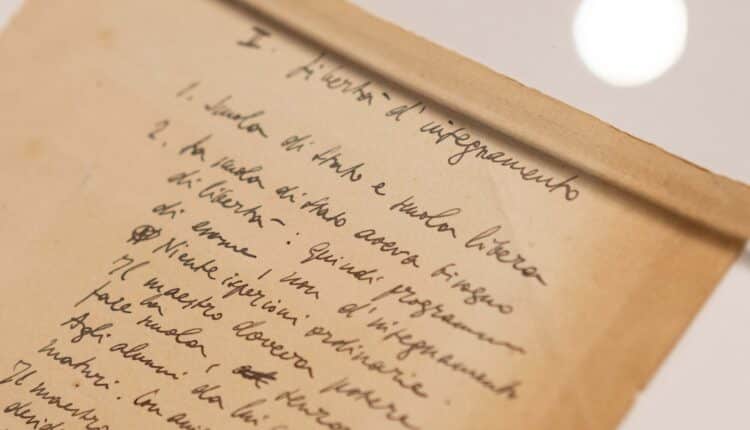 I. Libertà d'insegnamento
1. Scuola di Stato e scuola libera
2. La scuola di Stato aveva bisogno
di libertà: Quindi programmi
di esame, non d'insegnamento
Niente ispezioni ordinarie.
Il maestro doveva potere
fare scuola,
Agli alunni da lui
maturi. Con
Il maestro